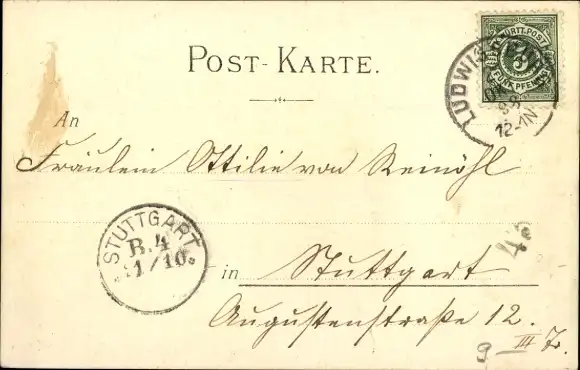 POST-KARTE.
K. WÜRTT. POST
5
FÜNF PFENNIG
LUDWIGSBURG
12-1N
An
Fräulein Ottilie von Reinöhl
STUTTGART
B. 4
1/10.
in Stuttgart
Augustenstraße 12.
9 — III